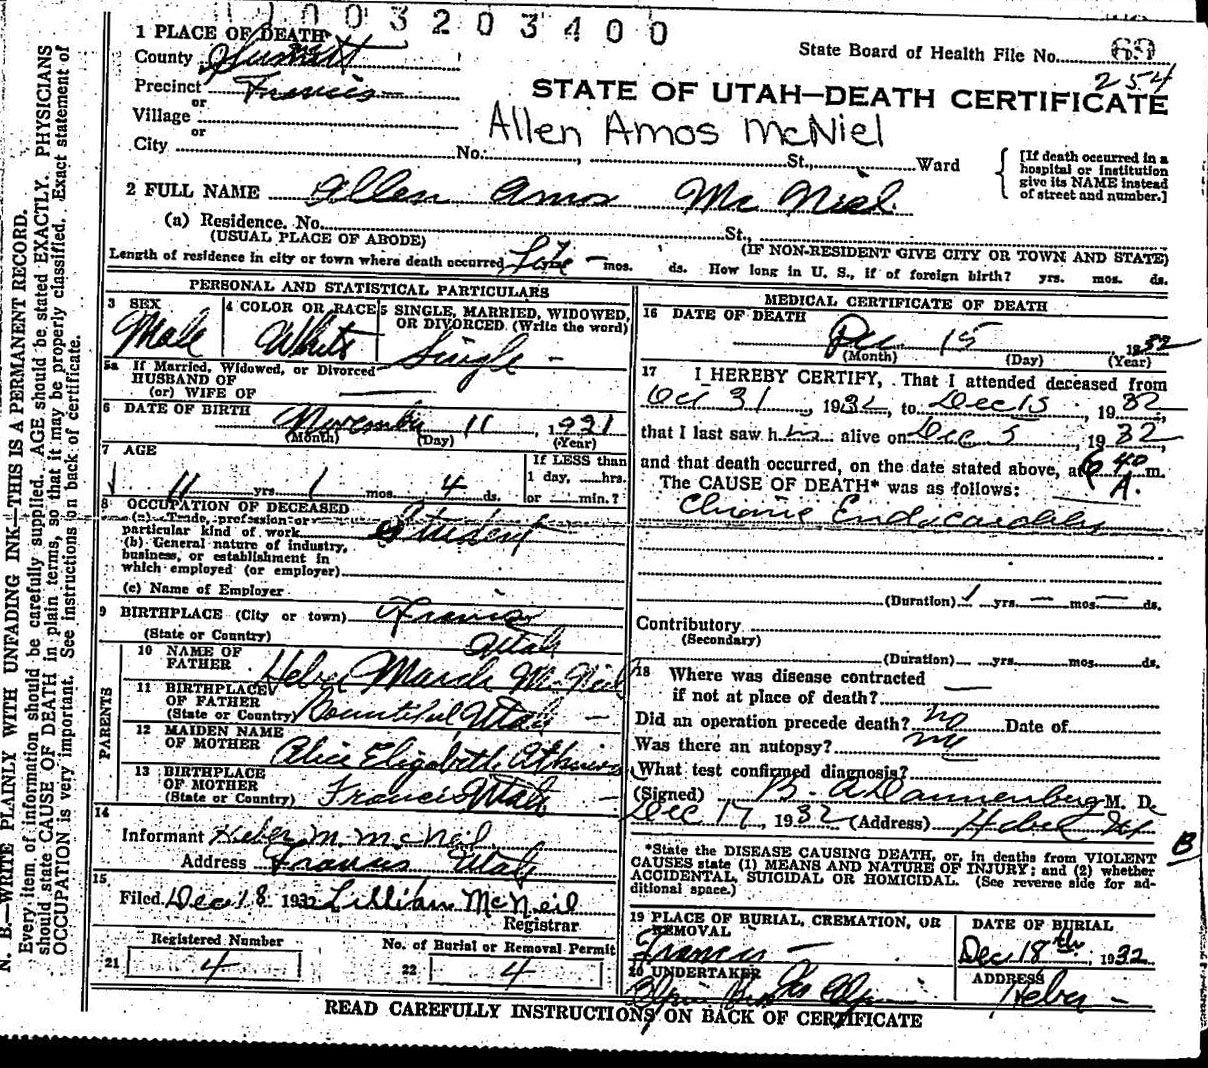 1003203400
1 PLACE OF DEATH
State Board of Health File No. 69
County Summit
254
Precinct Francis
STATE OF UTAH—DEATH CERTIFICATE
or
Village
Allen Amos McNiel
or
City No. St., Ward
[If death occurred in a
hospital or institution
give its NAME instead
of street and number.]
2 FULL NAME Allen Amos Mc Niel
(a) Residence. No. St.,
(USUAL PLACE OF ABODE) (IF NON-RESIDENT GIVE CITY OR TOWN AND STATE)
Length of residence in city or town where death occurred Life — mos. ds. How long in U. S., if of foreign birth? yrs. mos. ds.
PERSONAL AND STATISTICAL PARTICULARS
3 SEX
Male
4 COLOR OR RACE
White
5 SINGLE, MARRIED, WIDOWED,
OR DIVORCED. (Write the word)
Single —
5a If Married, Widowed, or Divorced
HUSBAND OF
(or) WIFE OF
6 DATE OF BIRTH
November 11 1921
(Month) (Day) (Year)
7 AGE
If LESS than
1 day, hrs.
or min.?
11 yrs. 1 mos. 4 ds.
8 OCCUPATION OF DECEASED
(a) Trade, profession or
particular kind of work Student
(b) General nature of industry,
business, or establishment in
which employed (or employer)
(c) Name of Employer
9 BIRTHPLACE (City or town) Francis
(State or Country) Utah
PARENTS
10 NAME OF
FATHER Heber March Mc Neil
11 BIRTHPLACE
OF FATHER
(State or Country) Bountiful Utah —
12 MAIDEN NAME
OF MOTHER Alice Elizabeth Atkinson
13 BIRTHPLACE
OF MOTHER
(State or Country) Francis Utah —
14
Informant Heber M. McNeil
Address Francis Utah
15
Filed Dec 18 1932 Lillian McNeil
Registrar
Registered Number
21 4
No. of Burial or Removal Permit
22 4
MEDICAL CERTIFICATE OF DEATH
16 DATE OF DEATH
Dec 15 1932
(Month) (Day) (Year)
17 I HEREBY CERTIFY, That I attended deceased from
Oct 31, 1932, to Dec 15, 1932,
that I last saw him alive on Dec 5, 1932
and that death occurred, on the date stated above, at 6 40 m.
A.
The CAUSE OF DEATH* was as follows:
Chronic Endocarditis
(Duration) 1 yrs. — mos. — ds.
Contributory
(Secondary)
(Duration) yrs. mos. ds.
18 Where was disease contracted
if not at place of death? —
Did an operation precede death? no Date of
Was there an autopsy? no
What test confirmed diagnosis?
(Signed) B. A Dannenberg M. D.
Dec 17, 1932 (Address) Heber Ut
B
*State the DISEASE CAUSING DEATH, or, in deaths from VIOLENT
CAUSES state (1) MEANS AND NATURE OF INJURY; and (2) whether
ACCIDENTAL, SUICIDAL OR HOMICIDAL. (See reverse side for ad-
ditional space.)
19 PLACE OF BURIAL, CREMATION, OR
REMOVAL
Francis —
DATE OF BURIAL
Dec 18th, 1932
20 UNDERTAKER
ADDRESS
Heber —
READ CAREFULLY INSTRUCTIONS ON BACK OF CERTIFICATE
N. B.—WRITE PLAINLY WITH UNFADING INK—THIS IS A PERMANENT RECORD.
Every item of information should be carefully supplied. AGE should be stated EXACTLY. PHYSICIANS
should state CAUSE OF DEATH in plain terms, so that it may be properly classified. Exact statement of
OCCUPATION is very important. See instructions on back of certificate.